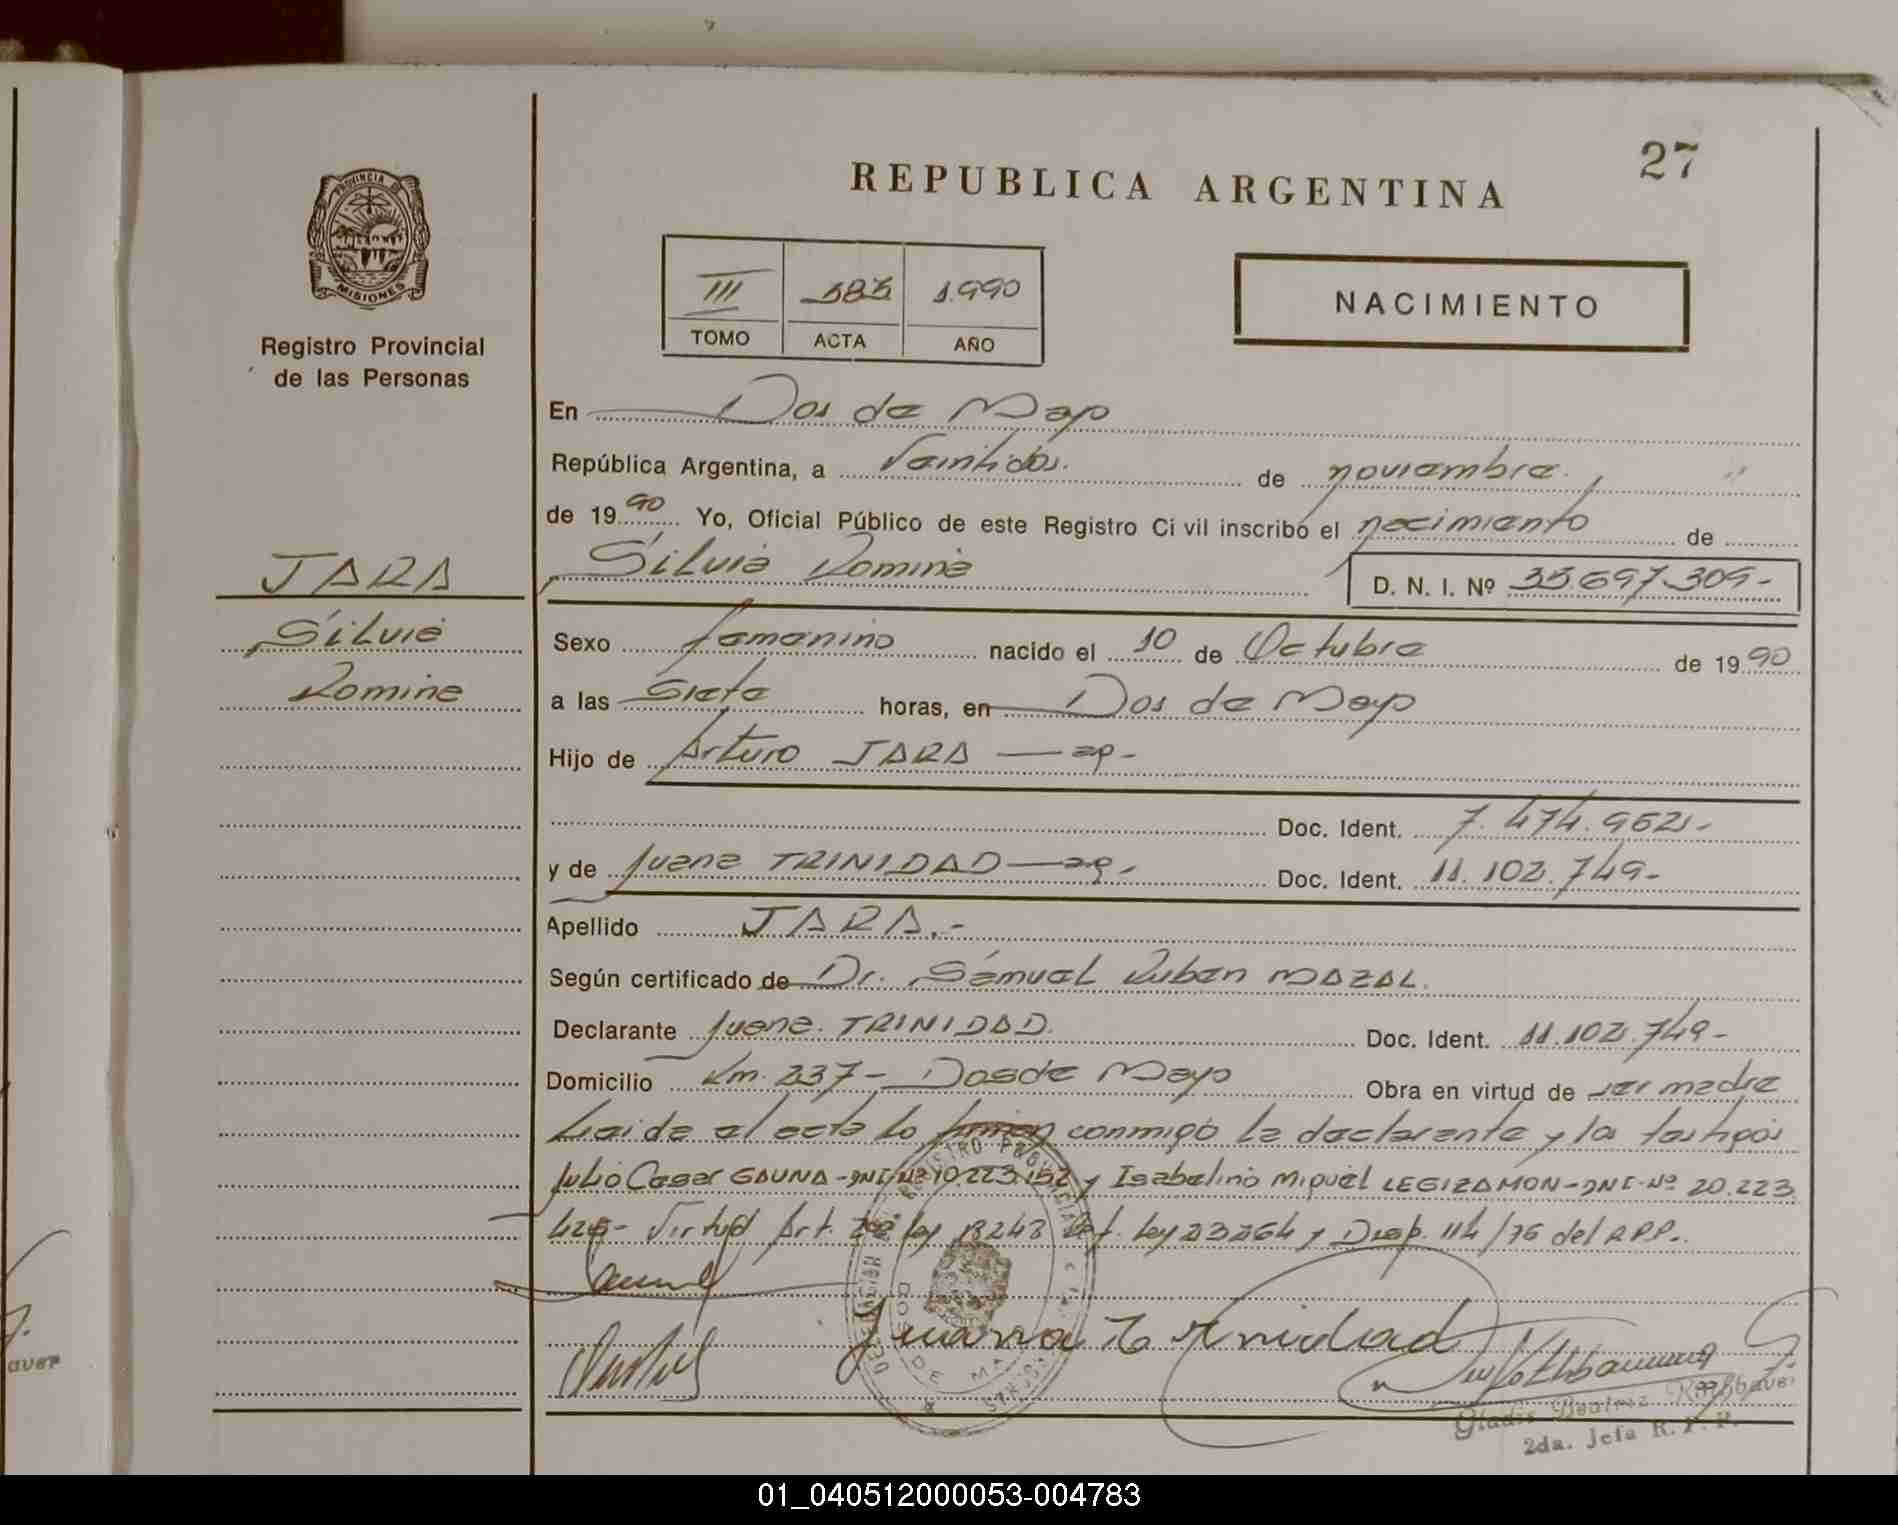 27
REPUBLICA ARGENTINA
PROVINCIA DE
MISIONES
Registro Provincial
de las Personas
III 383 1.990
TOMO ACTA AÑO
NACIMIENTO
En Dos de Mayo
República Argentina, a Veintidos. de noviembre.
de 1990 Yo, Oficial Público de este Registro Civil inscribo el nacimiento de
Silvia Romina D. N. I. Nº 35.697.309-
JARA
Silvia
Romina
Sexo femenino nacido el 10 de Octubre de 1990
a las Siete horas, en Dos de Mayo
Hijo de Arturo JARA — ag -
Doc. Ident. 7.474.952-
y de Juana TRINIDAD — ag -
Doc. Ident. 11.102.749-
Apellido JARA.-
Según certificado de Dr. Samuel Ruben MAZAL.
Declarante Juana. TRINIDAD. Doc. Ident. 11.102.749-
Domicilio Km. 237- Dos de Mayo Obra en virtud de ser madre
Leida el acta lo firman conmigo la declarante y los testigos
Julio Cesar GAUNA - DNI Nº 10.223.152 y Isabelino Miguel LEGIZAMON - DNI - Nº 20.223.
425- Virtud Art. ley 18248 ley 23264 y Disp. 114/76 del RPP.
Juana Trinidad
DOS DE MAYO
Gladis Beatriz Rothbauer
2da. Jefa R. P. P.
auer
01_040512000053-004783